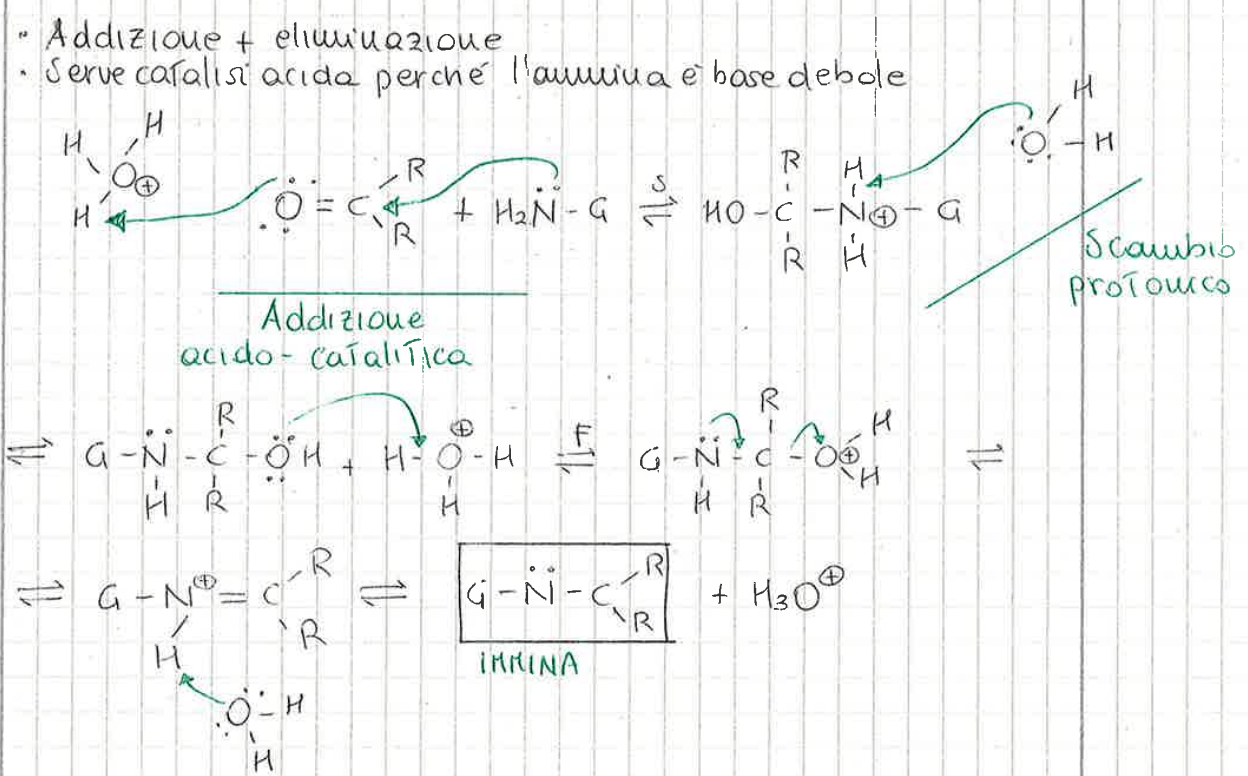 · Addizione + eliminazione
· Serve catalisi acida perché l'ammina è base debole
H H O⊕ H
O = C R R + H₂N - G ⇌ S HO - C R R - N⊕ H H - G
O H - H
Scambio
protonico
Addizione
acido-catalitica
⇌ G - N H - C R R - OH + H - O⊕ H - H ⇌ F G - N H - C R R - O⊕ H H ⇌
⇌ G - N⊕ H = C R R ⇌ G - N - C R R + H₃O⊕
IMMINA
O - H H